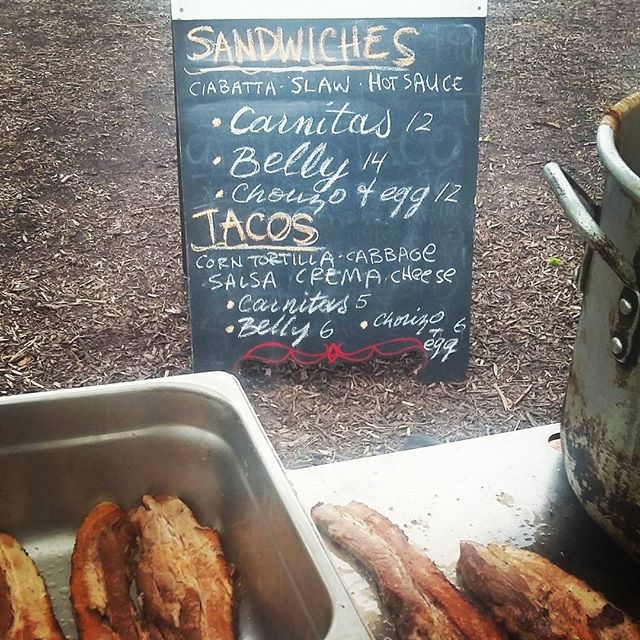 SANDWICHES
CIABATTA · SLAW · HOT SAUCE
• Carnitas 12
• Belly 14
• Chorizo + egg 12
TACOS
CORN TORTILLA · CABBAGE
SALSA CREMA CHEESE
• Carnitas 5
• Belly 6 • Chorizo + egg 6